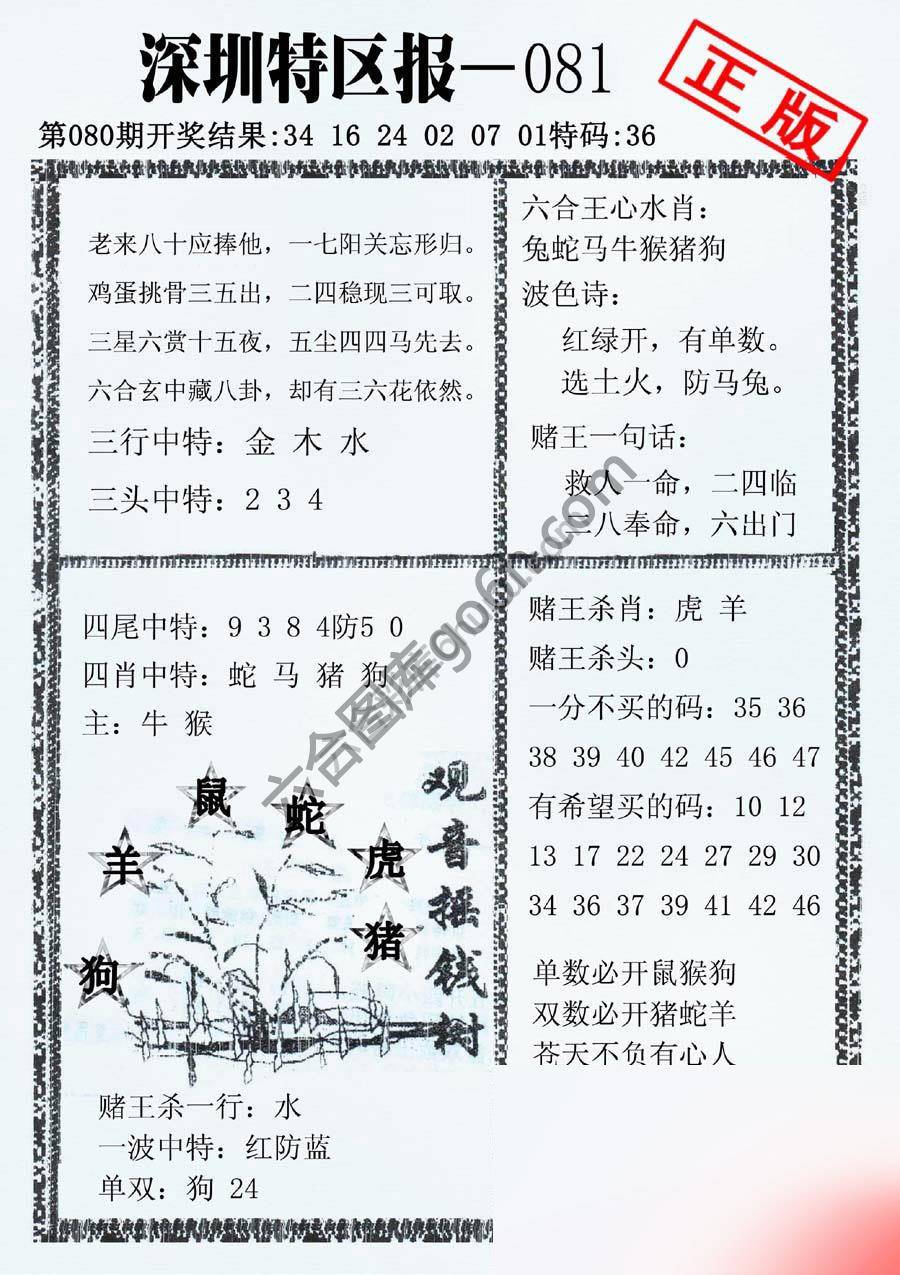 深圳特区报—081
正版
第080期开奖结果:34 16 24 02 07 01特码:36
老来八十应捧他，一七阳关忘形归。
鸡蛋挑骨三五出，二四稳现三可取。
三星六赏十五夜，五尘四四马先去。
六合玄中藏八卦，却有三六花依然。
三行中特：金 木 水
三头中特：2 3 4
六合王心水肖：
兔蛇马牛猴猪狗
波色诗：
红绿开，有单数。
选土火，防马兔。
赌王一句话：
救人一命，二四临
二八奉命，六出门
四尾中特：9 3 8 4防5 0
四肖中特：蛇 马 猪 狗
主：牛 猴
鼠
蛇
羊
虎
猪
狗
观音摇钱树
赌王杀一行：水
一波中特：红防蓝
单双：狗 24
赌王杀肖：虎 羊
赌王杀头：0
一分不买的码：35 36
38 39 40 42 45 46 47
有希望买的码：10 12
13 17 22 24 27 29 30
34 36 37 39 41 42 46
单数必开鼠猴狗
双数必开猪蛇羊
苍天不负有心人
六合图库go6h.com